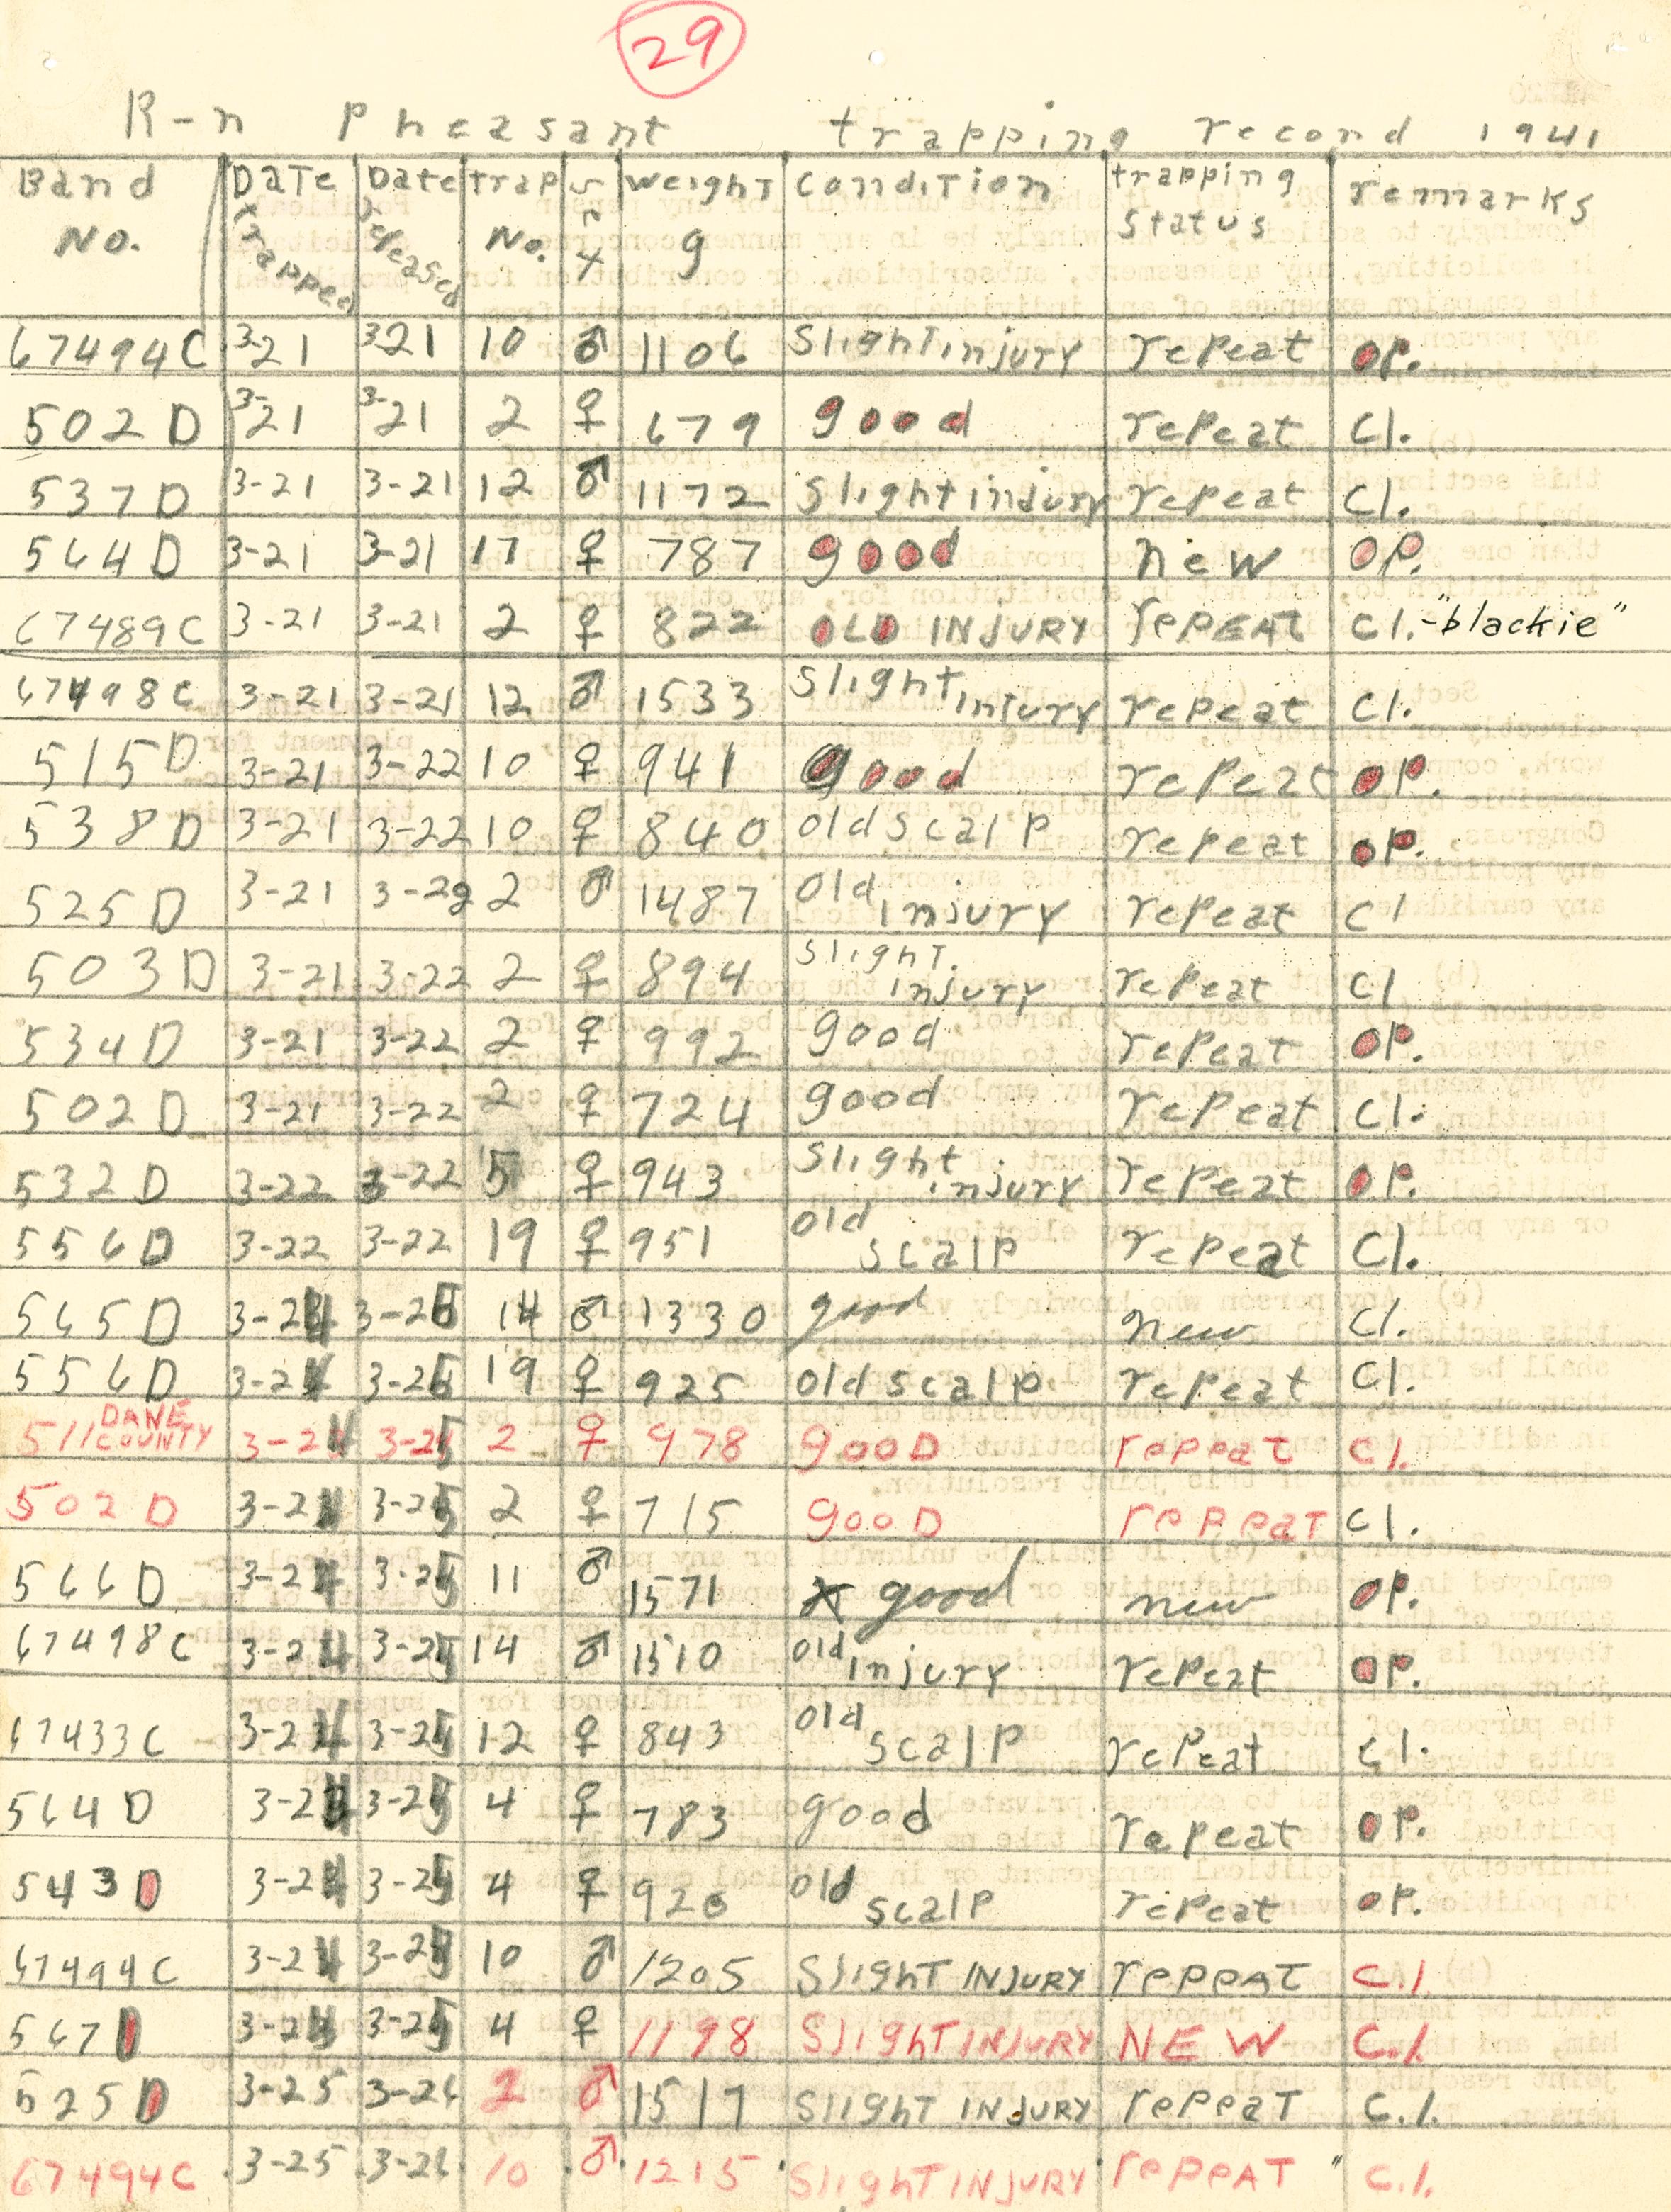 29
R-n Pheasant trapping record 1941
Band No. Date trapped Date released trap No. sex weight g condition trapping status remmarks
67494C 3-21 3-21 10 ♂ 1106 slight injury repeat op.
502 D 3-21 3-21 2 ♀ 679 good repeat cl.
537 D 3-21 3-21 12 ♂ 1172 slight injury repeat cl.
564 D 3-21 3-21 17 ♀ 787 good new op.
67489C 3-21 3-21 2 ♀ 822 OLD INJURY rePEAT cl.-"blackie"
67498C 3-21 3-21 12 ♂ 1533 slight injury repeat cl.
515 D 3-21 3-22 10 ♀ 941 good repeat op.
538 D 3-21 3-22 10 ♀ 840 old scalp repeat op.
525 D 3-21 3-22 2 ♂ 1487 old injury repeat cl
503 D 3-21 3-22 2 ♀ 894 slight injury repeat cl
534 D 3-21 3-22 2 ♀ 992 good repeat op.
502 D 3-21 3-22 2 ♀ 724 good repeat cl.
532 D 3-22 3-22 5 ♀ 943 slight injury repeat op.
556 D 3-22 3-22 19 ♀ 951 old scalp repeat cl.
565 D 3-24 3-25 14 ♂ 1330 good new cl.
556 D 3-24 3-25 19 ♀ 925 old scalp repeat cl.
511 DANE COUNTY 3-24 3-25 2 ♀ 978 gooD repeat cl.
502 D 3-24 3-25 2 ♀ 715 gooD repeat cl.
566 D 3-24 3-25 11 ♂ 1571 good new op.
67498C 3-24 3-25 14 ♂ 1510 old injury repeat op.
67433C 3-24 3-25 12 ♀ 843 old scalp repeat cl.
564 D 3-24 3-25 4 ♀ 783 good repeat op.
543 D 3-24 3-25 4 ♀ 926 old scalp repeat op.
67494C 3-24 3-25 10 ♂ 1205 Slight INJURY repeAT c.l.
567 D 3-24 3-25 4 ♀ 1198 Slight INJURY NEW c.l.
525 D 3-25 3-26 2 ♂ 1517 Slight INJURY repeaT c.l.
67494C 3-25 3-26 10 ♂ 1215 Slight INJURY repeAT " c.l.